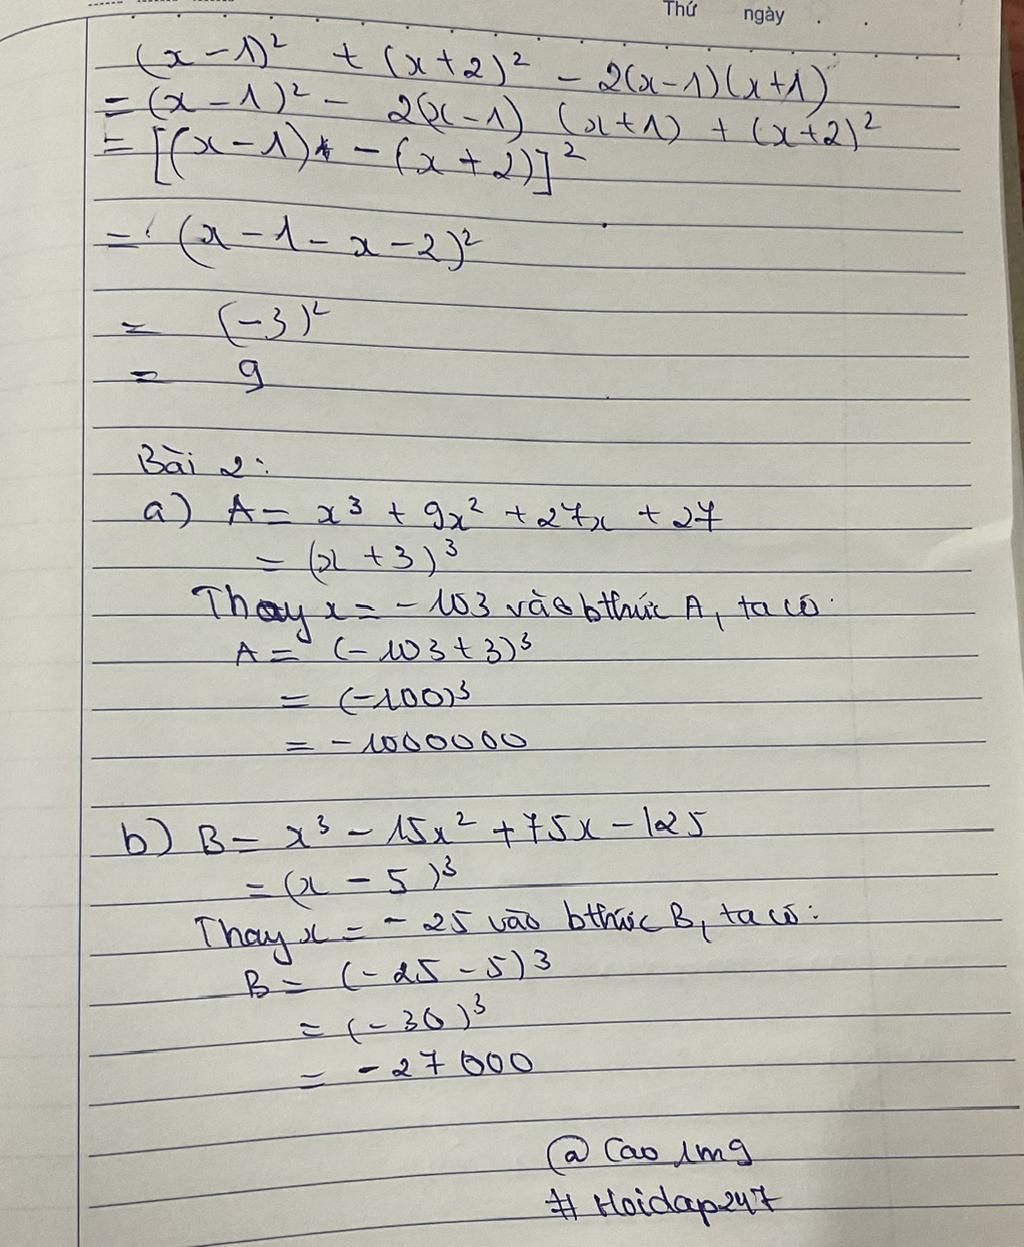 Thứ ngày
(x - 1)² + (x+2)² - 2(x-1)(x+1)
= (x - 1)² - 2(x-1) (x+1) + (x+2)²
= [(x-1) - (x+2)]²
= (x-1-x-2)²
= (-3)²
= 9
Bài 2:
a) A = x³ + 9x² + 27x + 27
= (x + 3)³
Thay x = -103 vào bthức A, ta có:
A = (-103+3)³
= (-100)³
= -1000000
b) B = x³ - 15x² + 75x - 125
= (x - 5)³
Thay x = -25 vào bthức B, ta có:
B = (-25-5)³
= (-30)³
= -27 000
@ Cao 1m9
# Hoidap247